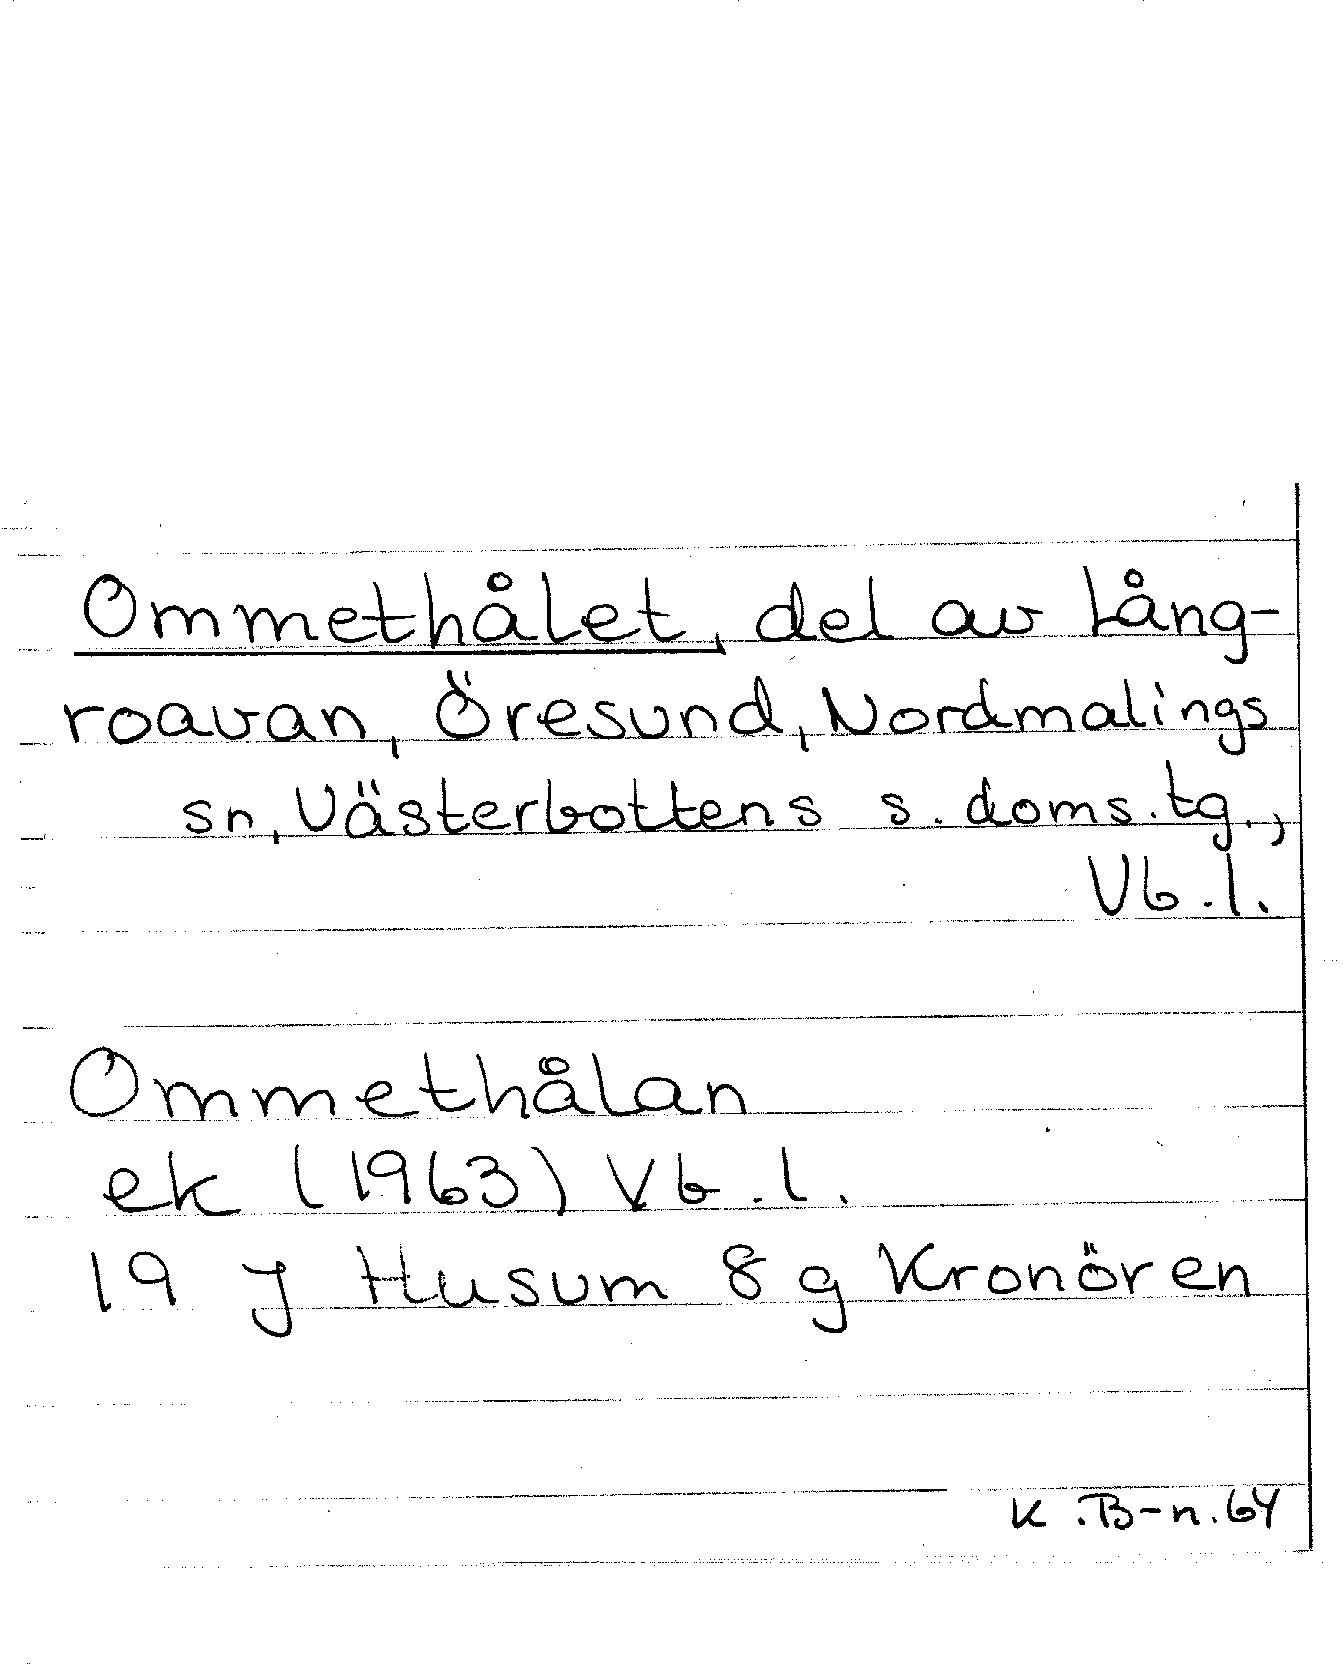 Ommethålet, del av Lång-
roavan, Öresund, Nordmalings
sn, Västerbottens s. doms.tg.,
Vb.l.
Ommethålan
ek (1963) Vb.l.
19 J Husum 8 g Kronören
K.B-n.64